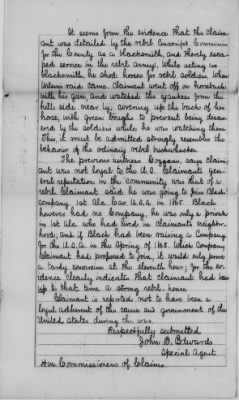 It seems from the evidence that the claim-
ant was detailed by the rebel Conscript Commission
for the County as a blacksmith, and thereby esca-
ped service in the rebel army. While acting as
blacksmith, he shod horses for rebel soldiers. When
raid came Claimant went off on horseback
with his gun, and watched the yankees from the
hill side near by, covering up the back of his
horse, with green boughs to prevent being discov-
ered by the soldiers while he was watching them.
This it must be admitted strongly resembles the
behavior of the ordinary rebel bushwhacker.
The previous witness says claim-
ant was not loyal to the U.S. Claimants gen-
eral reputation in the community was that of a
rebel. Claimant said he was going to join Black
company 1st Ala Cav. U.S.A. in 1865. Black
however had no Company, he was only a private
in 1st Ala. who had lived in Claimants neighbor-
hood, and if Black had been raising a Company
for the U.S.A. in the Spring of 1865. Which Company
Claimant had proposed to join, it would only prove
a tardy conversion at the eleventh hour; for the ev-
idence clearly indicate that claimant had been
up to that time a strong rebel.
Claimant is reported not to have been a
loyal adherent of the cause and government of the
United States during the war.
Respectfully submitted
John D. Edwards
Special Agent
Hon. Commissioners of Claims.